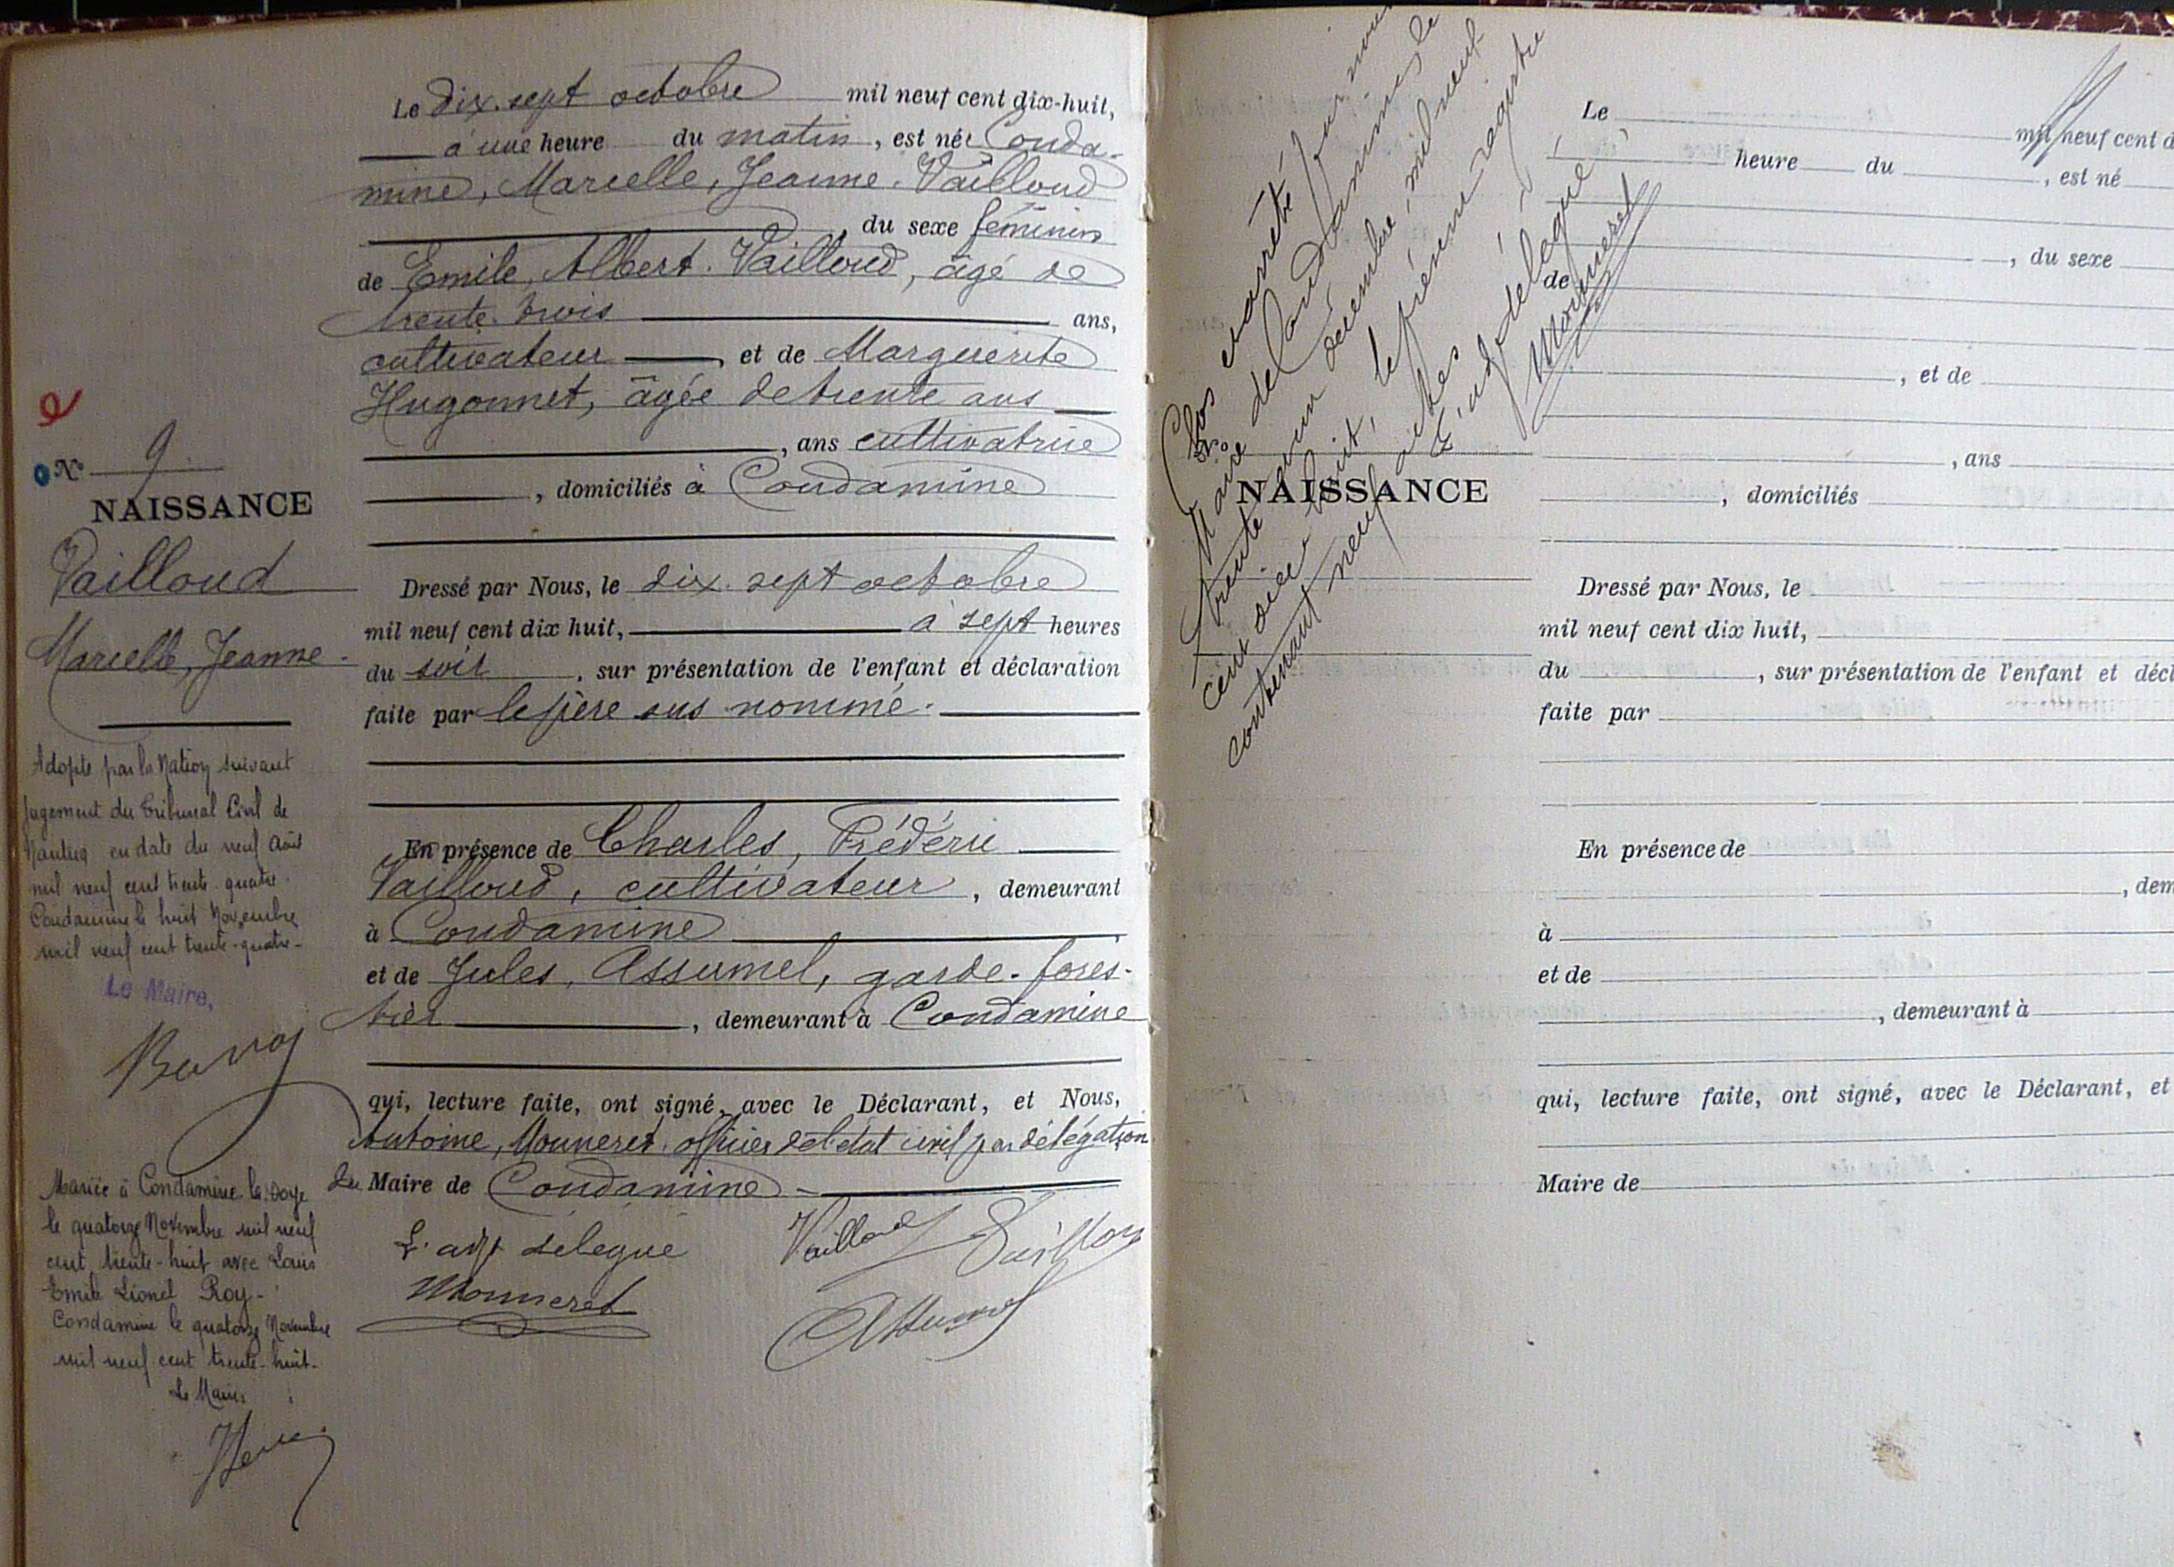 Le dix-sept octobre mil neuf cent dix-huit,
à une heure du matin, est née Conda-
mine, Marcelle, Jeanne. Vailloud
du sexe féminin
de Emile, Albert. Vailloud, âgé de
trente-trois ans,
cultivateur, et de Marguerite
Hugonnet, âgée de trente ans
, ans cultivatrice
, domiciliés à Condamine
Dressé par Nous, le dix-sept octobre
mil neuf cent dix huit, à sept heures
du soir, sur présentation de l'enfant et déclaration
faite par le père sus nommé.
En présence de Charles, Frédéric
Vailloud, cultivateur, demeurant
à Condamine
et de Jules, Assumel, garde-fores-
tier, demeurant à Condamine
qui, lecture faite, ont signé, avec le Déclarant, et Nous,
Antoine, Monneret. officier de l'état civil par délégation
du Maire de Condamine
L'adjt délégué
Monneret
Vailloud
Vailloud
Assumel
N° 9
NAISSANCE
Vailloud
Marcelle, Jeanne.
Adopté par la Nation suivant
jugement du Tribunal Civil de
Nantua en date du neuf Août
mil neuf cent trente-quatre.
Condamine le huit Novembre
mil neuf cent trente-quatre-
Le Maire,
Mariée à Condamine la Doye
le quatorze Novembre mil neuf
cent trente-huit avec Louis
Emile Lionel Roy-
Condamine le quatorze Novembre
mil neuf cent trente-huit-
Le Maire
Clos et arrêté par nous
Maire de Condamine, le
trente un décembre, mil neuf
cent dix huit, le présent registre
contenant neuf actes
L'adjt délégué
Monneret
NAISSANCE
Le mil neuf cent d
heure du , est né
, du sexe
de
, et de
, ans
, domiciliés
Dressé par Nous, le
mil neuf cent dix huit,
du , sur présentation de l'enfant et décl
faite par
En présence de
, dem
à
et de
, demeurant à
qui, lecture faite, ont signé, avec le Déclarant, et
Maire de